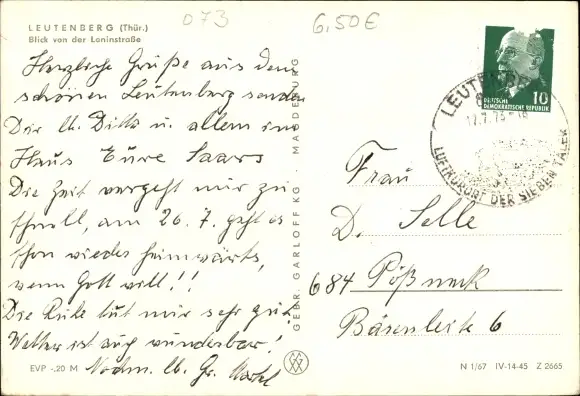 073
6,50€
LEUTENBERG (Thür.)
Blick von der Leninstraße
Herzliche Grüße aus dem
schönen Leutenberg senden
Dir u. allem im
Haus Eure
Die Zeit vergeht nur zu
schnell, am 26.7. geht es
schon wieder heimwärts,
wenn Gott will!!
Die Ruhe tut mir sehr gut
Wetter ist auch wunderbar!
Nochm. lb. Gr.
EVP -,20 M
GEBR. GARLOFF KG · MAGDEBURG
10
DEUTSCHE
DEMOKRATISCHE REPUBLIK
LEUTENBERG
17.7.73
LUFTKURORT DER SIEBEN TÄLER
Frau
D. Selle
684 Pößneck
Bärenleite 6
N 1/67 IV-14-45 Z 2665